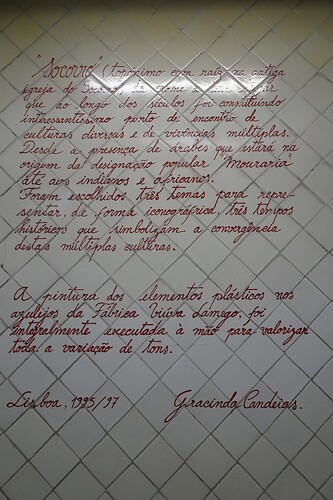 "Socorro" (topónimo com raiz na antiga
igreja do Socorro, de nome
que ao longo dos séculos foi constituindo
interessantíssimo ponto de encontro de
culturas diversas e de vivências múltiplas.
Desde a presença de árabes que estará na
origem da designação popular "Mouraria"
até aos indianos e africanos.
Foram escolhidos três temas para repre-
sentar, de forma iconográfica, três tempos
históricos que simbolizam a convergência
destas múltiplas culturas.
A pintura dos elementos plásticos nos
azulejos da Fábrica Viúva Lamego, foi
integralmente executada à mão para valorizar
toda a variação de tons.
Lisboa, 1995/97
Gracinda Candeias.